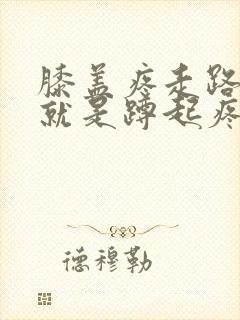 膝盖疼走路
就是蹲起疼
德穆勒